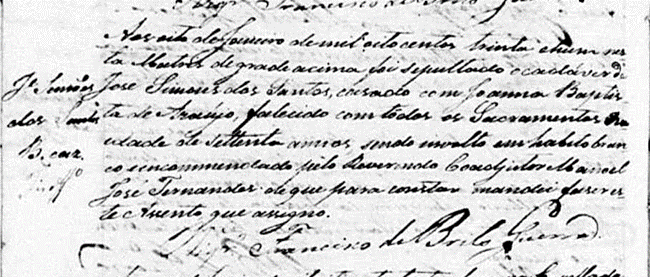 Aos oito de Janeiro de mil oito centos trinta e hum nes
ta Matris de grade acima foi sepultado o cadaver de
José Simoes dos Santos, casado com Joanna Baptis
ta de Araujo, falecido com todos os Sacramentos
idade de Settenta annos, sendo involto em habito bran
co e encommendado pelo Reverendo Coadjutor Manoel
José Fernandes de que para constar mandei fazer es
te Assento que assigno.
Francisco de Brito Guerra
Je. Simões
dos Santos
B. caz.